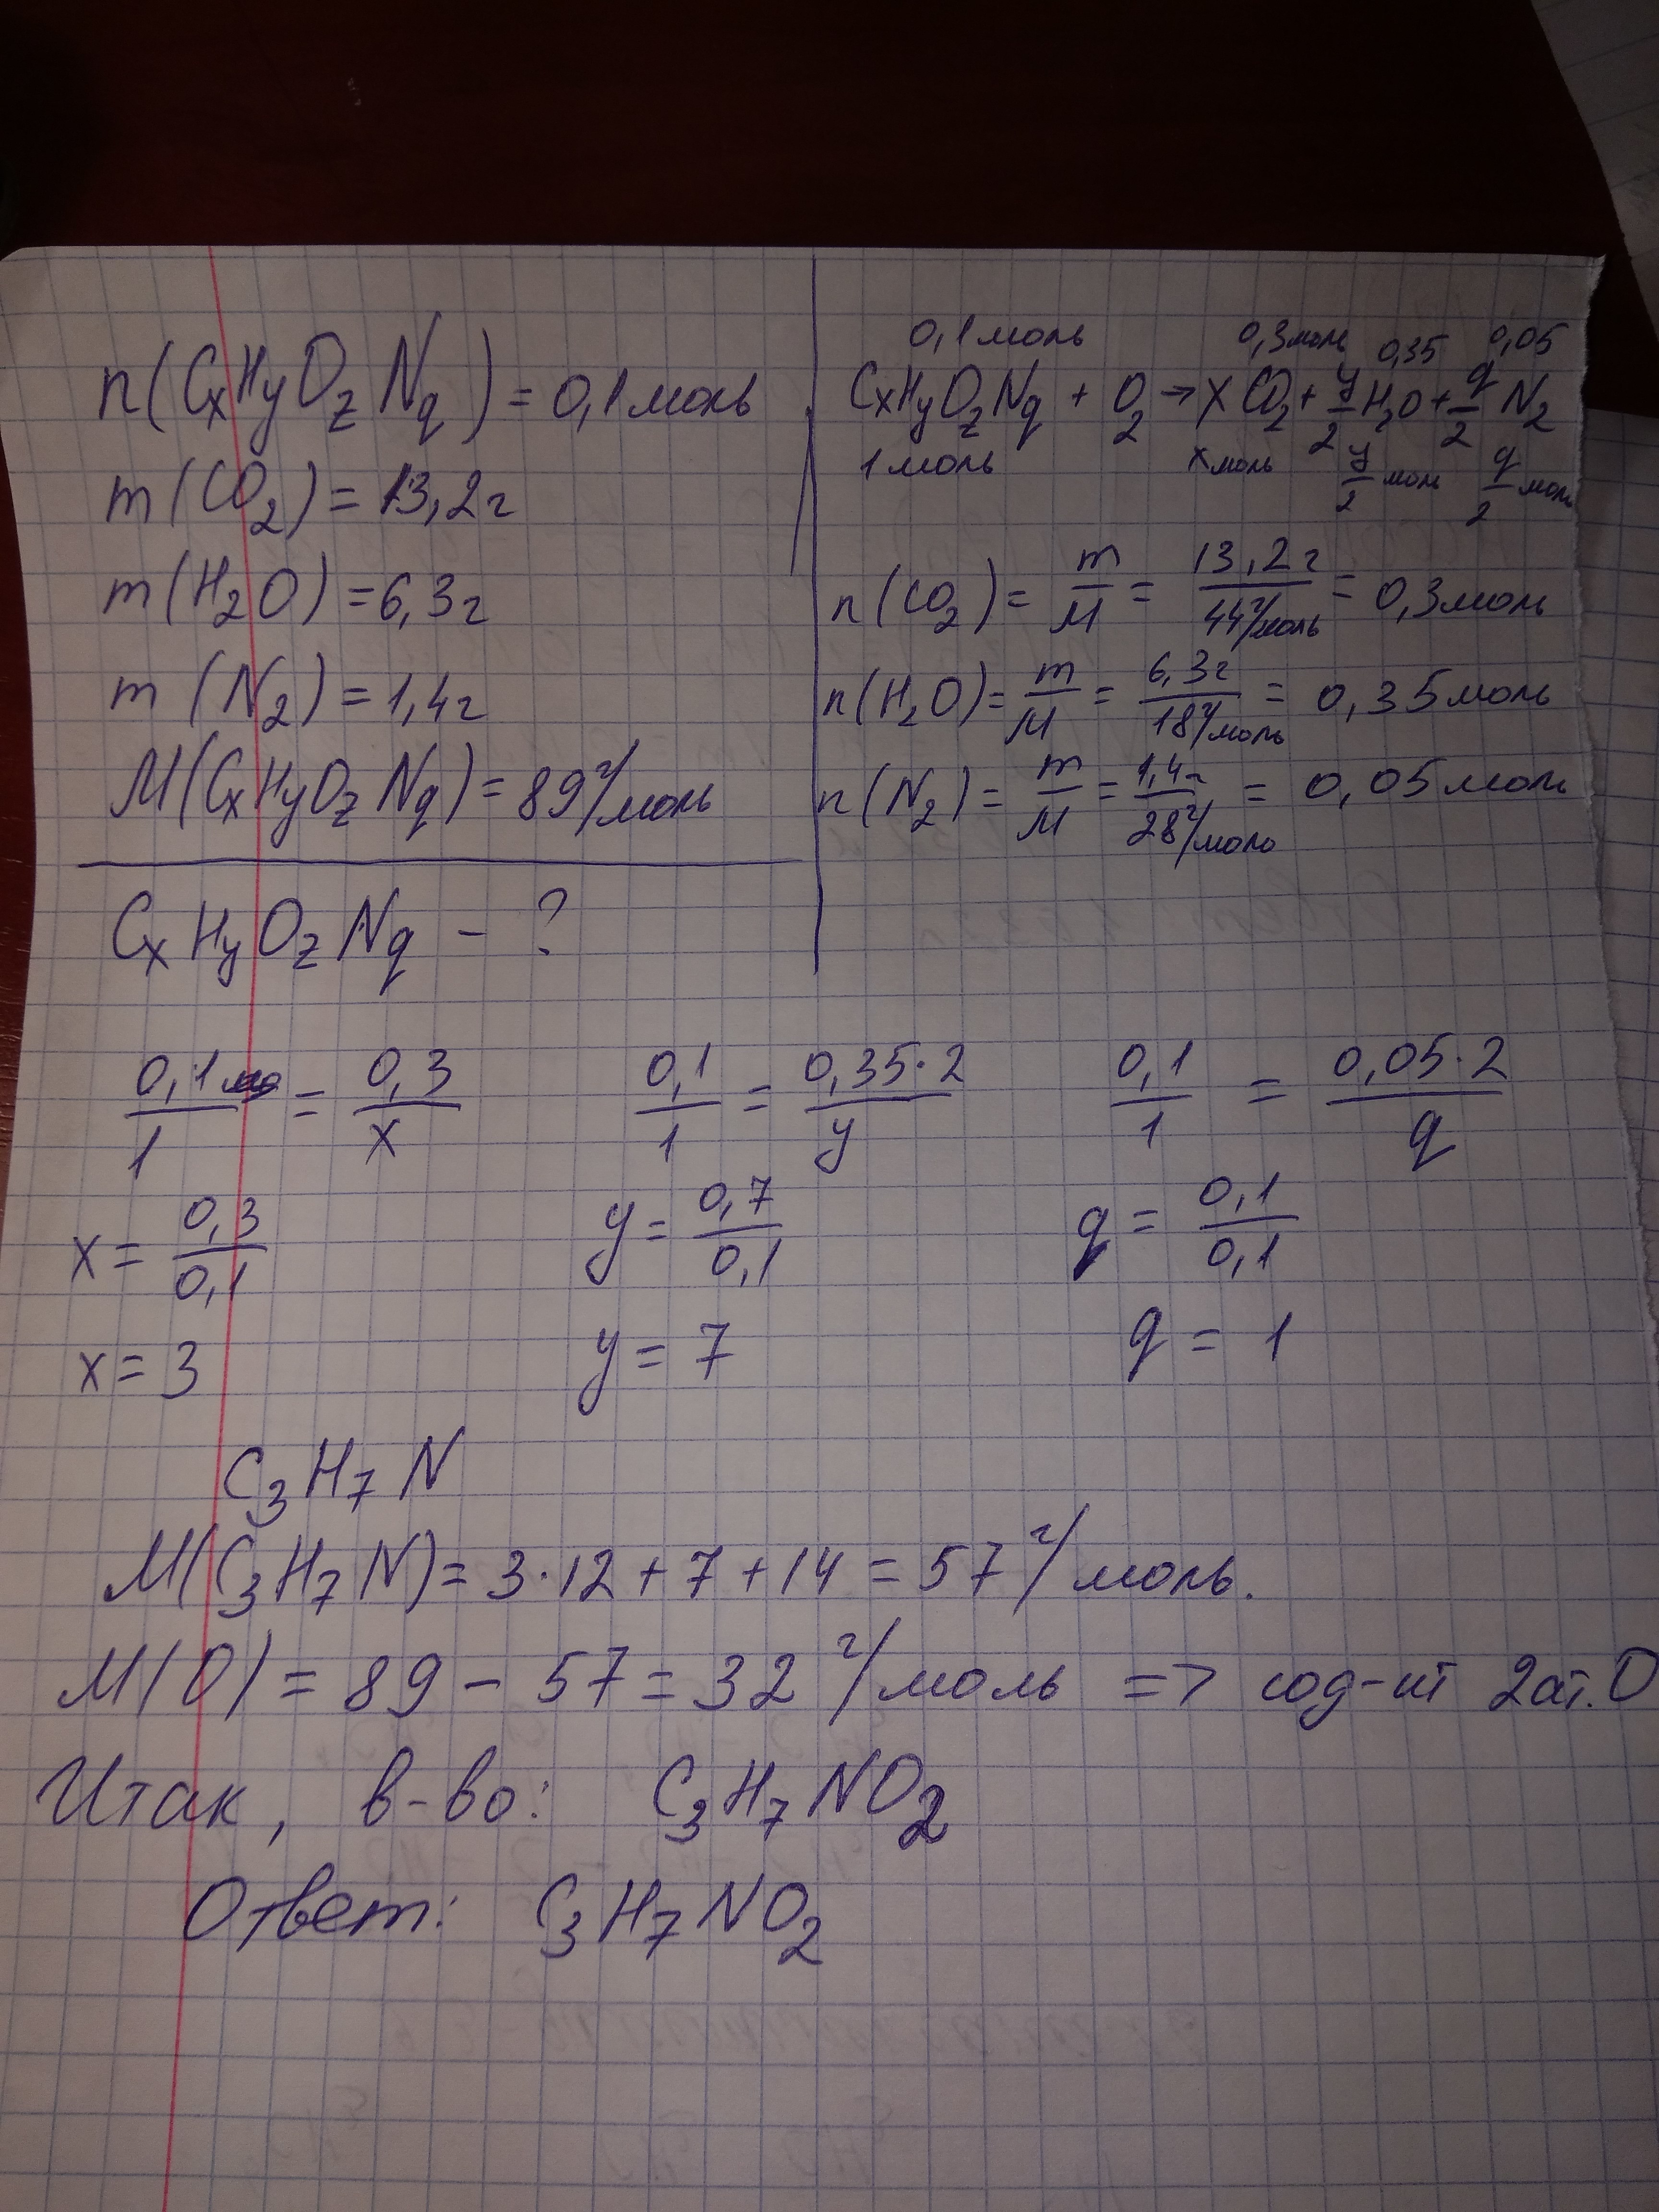 n(CxHyOzNq) = 0,1 моль
m(CO2) = 13,2 г
m(H2O) = 6,3 г
m(N2) = 1,4 г
M(CxHyOzNq) = 89 г/моль
CxHyOzNq - ?
0,1 моль 0,3 моль 0,35 0,05
CxHyOzNq + O2 → XCO2 + y/2 H2O + q/2 N2
1 моль x моль y/2 моль q/2 моль
n(CO2) = m/M = 13,2 г / 44 г/моль = 0,3 моль
n(H2O) = m/M = 6,3 г / 18 г/моль = 0,35 моль
n(N2) = m/M = 1,4 г / 28 г/моль = 0,05 моль
0,1/1 = 0,3/x 0,1/1 = 0,35·2/y 0,1/1 = 0,05·2/q
x = 0,3/0,1 y = 0,7/0,1 q = 0,1/0,1
x = 3 y = 7 q = 1
C3H7N
M(C3H7N) = 3·12 + 7 + 14 = 57 г/моль.
M(O) = 89 - 57 = 32 г/моль => сод-ит 2 ат. O
Итак, в-во: C3H7NO2
Ответ: C3H7NO2